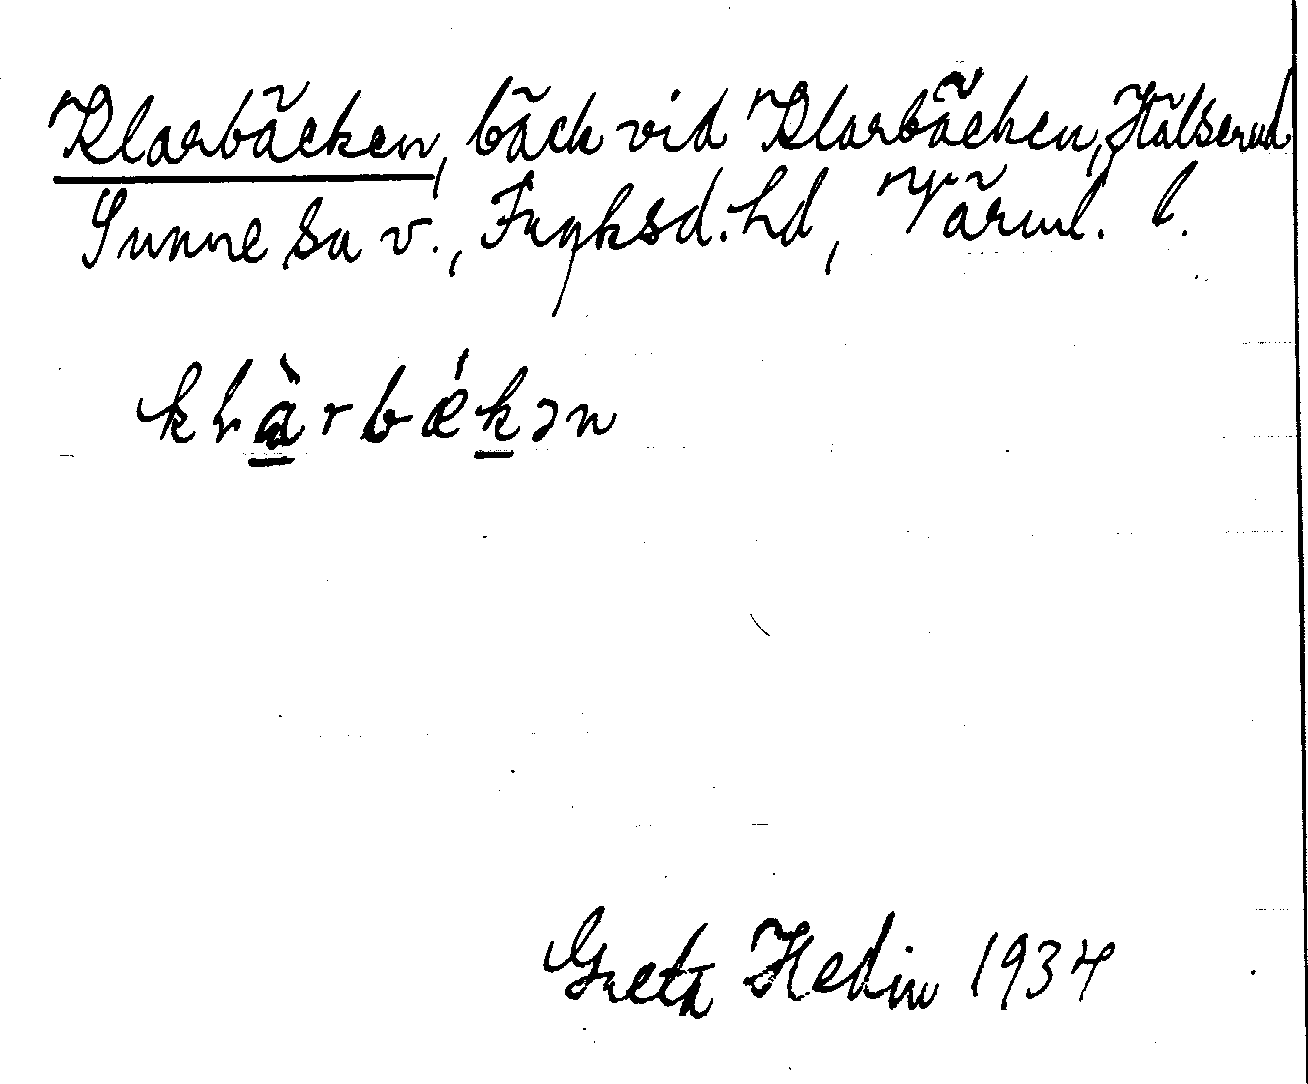 Klarbäcken, bäck vid Klarbäcken, Hälserud
Sunne sn v., Fryksd. hd, Värml. l.
kl̥à̱rbǽḵən
Greta Hedin 1934